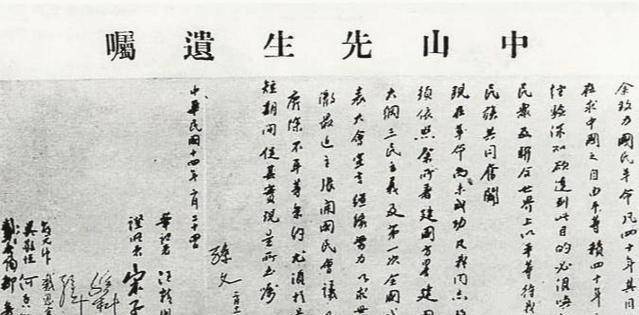 中山先生遺囑
余致力國民革命凡四十年其目
在求中國之自由平等積四十年
經驗深知欲達到此目的必須喚
民眾及聯合世界上以平等待我
民族共同奮鬪
現在革命尚未成功凡我同志
須依照余所著建國方畧建國
大綱三民主義及第一次全國
表大會宣言繼續努力以求
徹最近主張開國民會議及
廢除不平等條約尤須於
短期間促其實現是所至囑
孫文
中華民國十四年二月二十四日
筆記者 汪精
證明者 宋子
孫科
邵元冲 戴恩
吳敬恆 何香